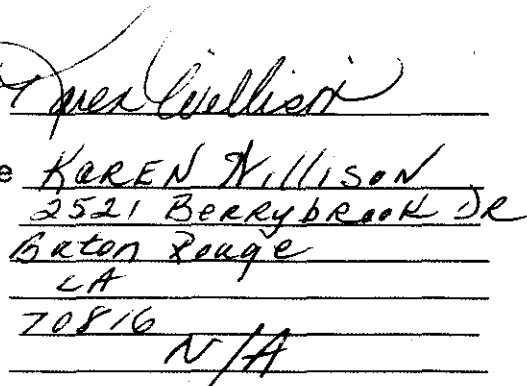 Karen Willison
e KAREN WILLISON
2521 BERRYBROOK DR
Baton Rouge
LA
70816
N/A